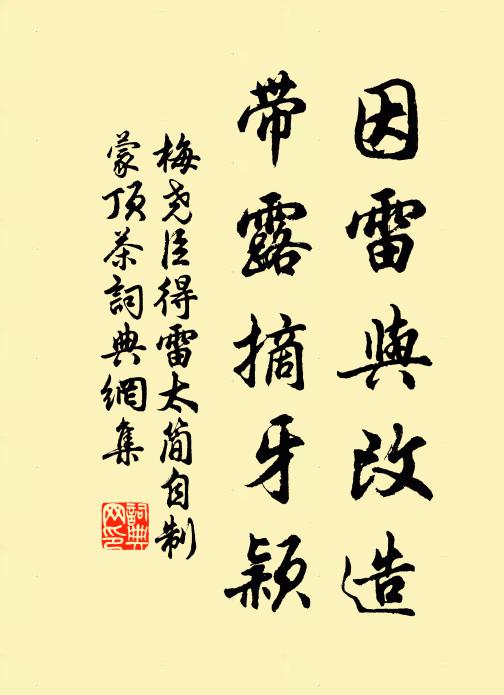 因雷與改造
带露摘牙颖
梅尧臣得雷太简自制
蒙顶茶詞典網集
詞典网印